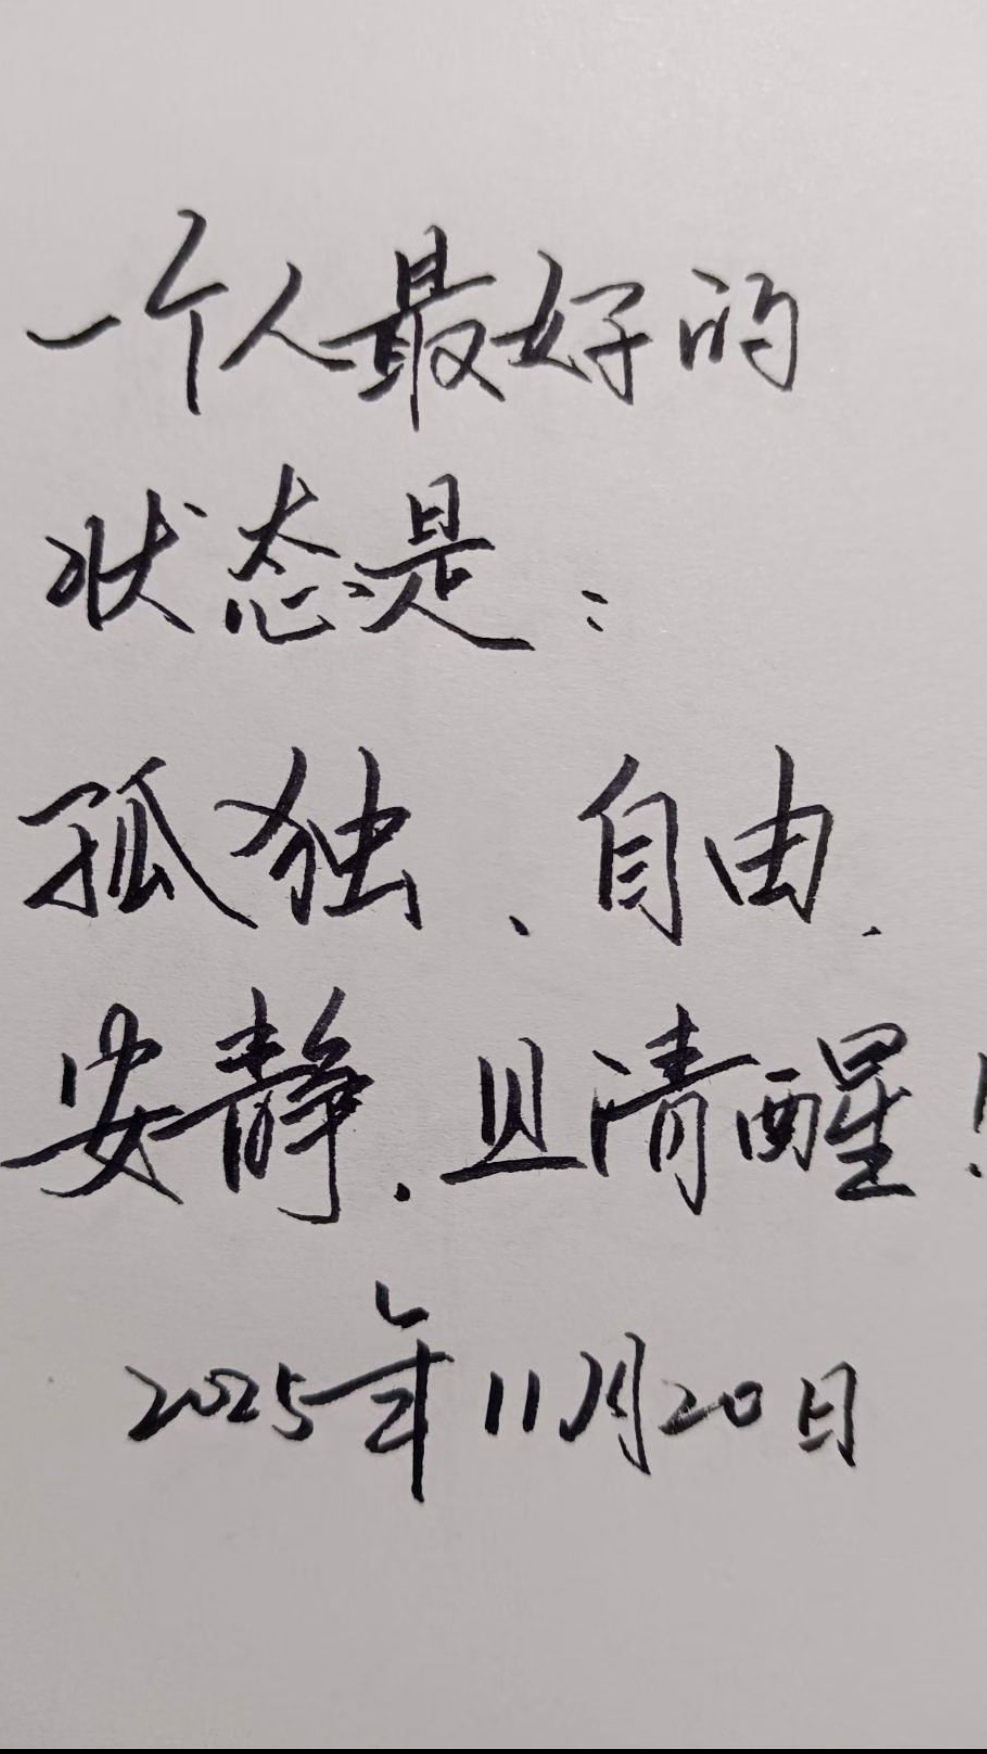 一个人最好的
状态是：
孤独、自由、
安静、且清醒！
2025年11月20日